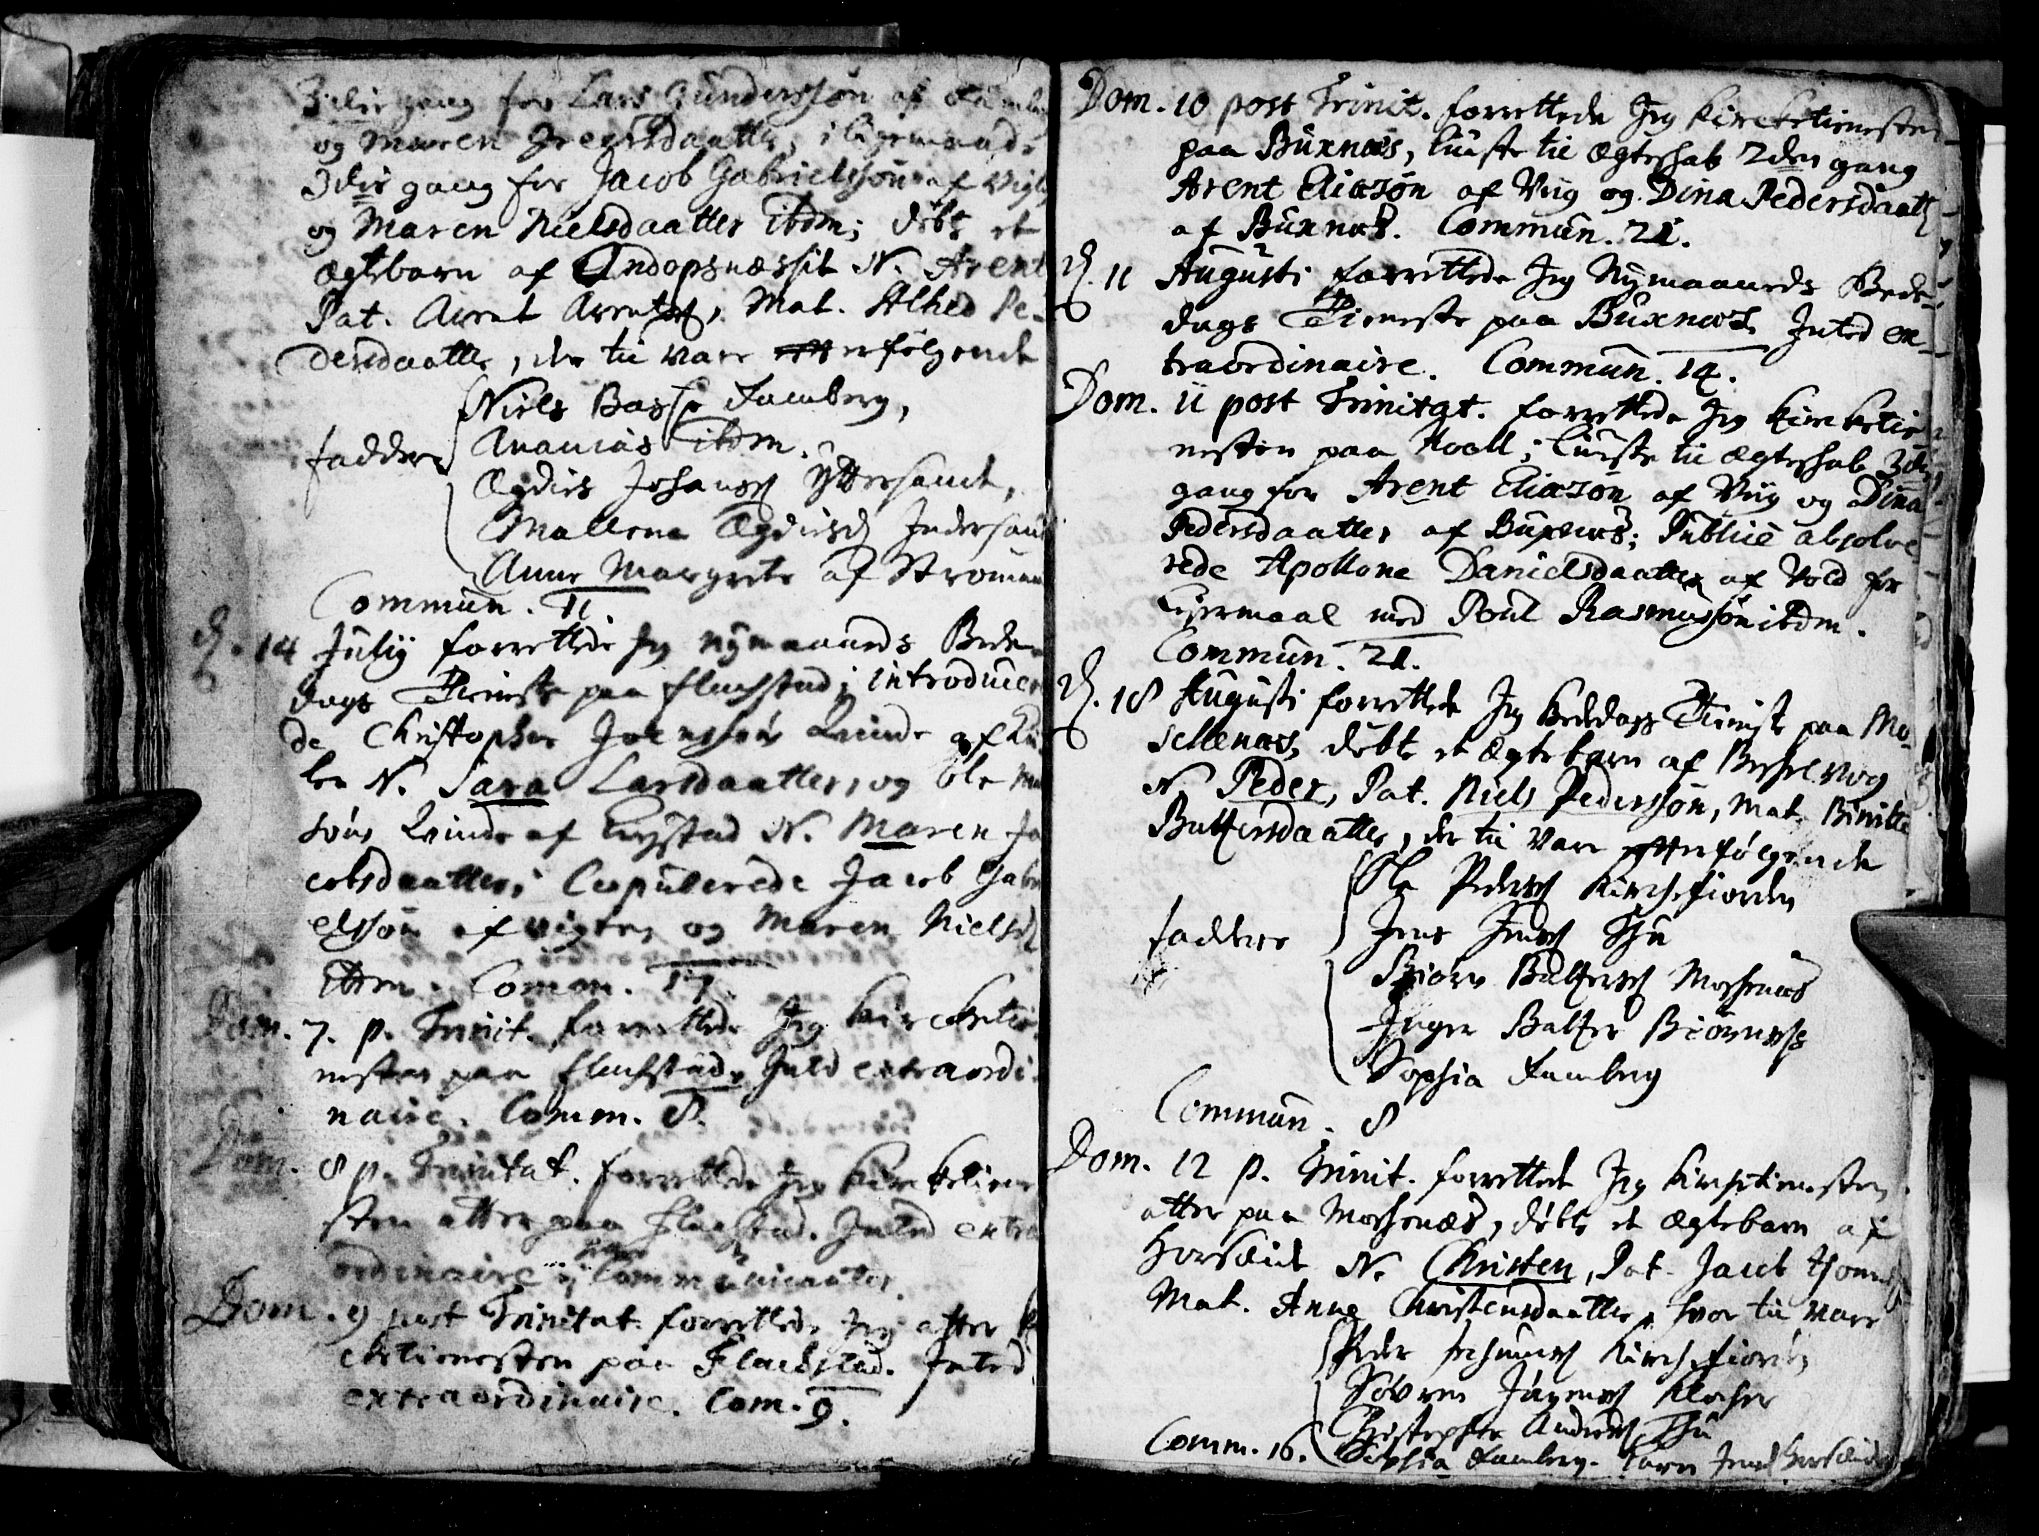 3die gang for Lars Gunderssøn af
og Maren Greersdaatter, i ligemaade
3die gang for Jacob Gabrielssøn af Vigt
og Maren Nielsdaatter ibdm; døbt et
ægtebarn af Andopsnæssit N. Arent
Pat. Arent Arents, Mat. Alhed Pe-
dersdaatter, der til vare efterfølgende
Niels Basse Ramberg,
faddere Ananias ibdm.
Ægdies Johans Yttersand,
Mallena Ægdiusd Indersand
Anne Margrete af Strømmen
Commun. 11.
d. 14 Julij forrettede Jeg Nymaaneds Bede-
dags Tieneste paa Flachstad; introducer
de Christopher Joenssøns Quinde af
N. Sara Larsdaatter, og Ole
søns Quinde af N. Maren Ja
cobsdaatter; Copulerede Jacob Gabri
elssøn af Vigten og Maren Nielsd
ibdm. Comm. 17.
Dom. 7. p. Trinit. forrettede Jeg Kircketie-
nesten paa Flachstad, Inted extraordi-
naire. Comm. 8.
Dom. 8 p. Trinitat. forrettede Jeg Kircketiene
sten atter paa Flagstad. Inted extra
ordinaire ej Communicanter.
Dom. 9 post Trinitat. forrettede Jeg atter Kir
cketienesten paa Flackstad. Inted
extraordinaire. Com. 9.
Dom. 10 post Trinit. forrettede Jeg Kircketienesten
paa Buxnæs, liuste til Ægteskab 2den gang
Arent Eliasøn af Viig og Dina Pedersdaatt
af Buxnæs. Commun. 21.
d. 11 Augusti forrettede Jeg Nymaaneds Bede-
dags Tieneste paa Buxnæs Inted ex-
traordinaire. Commun. 14.
Dom. 11 post Trinitat. forrettede Jeg Kircketie-
nesten paa Hoell; liuste til ægteskab 3die
gang for Arent Eliasøn af Viig og Dina
Pedersdaatter af Buxnæs; Publice absolve
rede Apollone Danielsdaatter af Vold for
Leyermaal med Poul Rasmussøn ibdm.
Commun. 21.
d. 18 Augusti forrettede Jeg Bededags Tieniste paa Mo-
schenæs, døbt et Ægtebarn af
N Peder, Pat. Niels Pederssøn, Mat. Biritte
Baltzersdaatter, der til vare efterfølgende
Ole Peders Kirchefiorden
faddere Jens Jens Thu
Biørn Baltzers Moschenæs
Inger Baltzer Biørnss
Sophia Ramberg
Commun. 8
Dom. 12 p. Trinit. forrettede Jeg Kirchetienesten
atter paa Moschenæs, døbt et ægtebarn af
Horseid N. Christen, Pat. Jacob Thom
Mat. Anne Christensdaatter, hvor til vare
Peder Kirchefiorden
Søvren Jørgens Klocher
Christopher Anders Thu
Comm. 16. Sophia Ramberg. Karen Jens Horseid